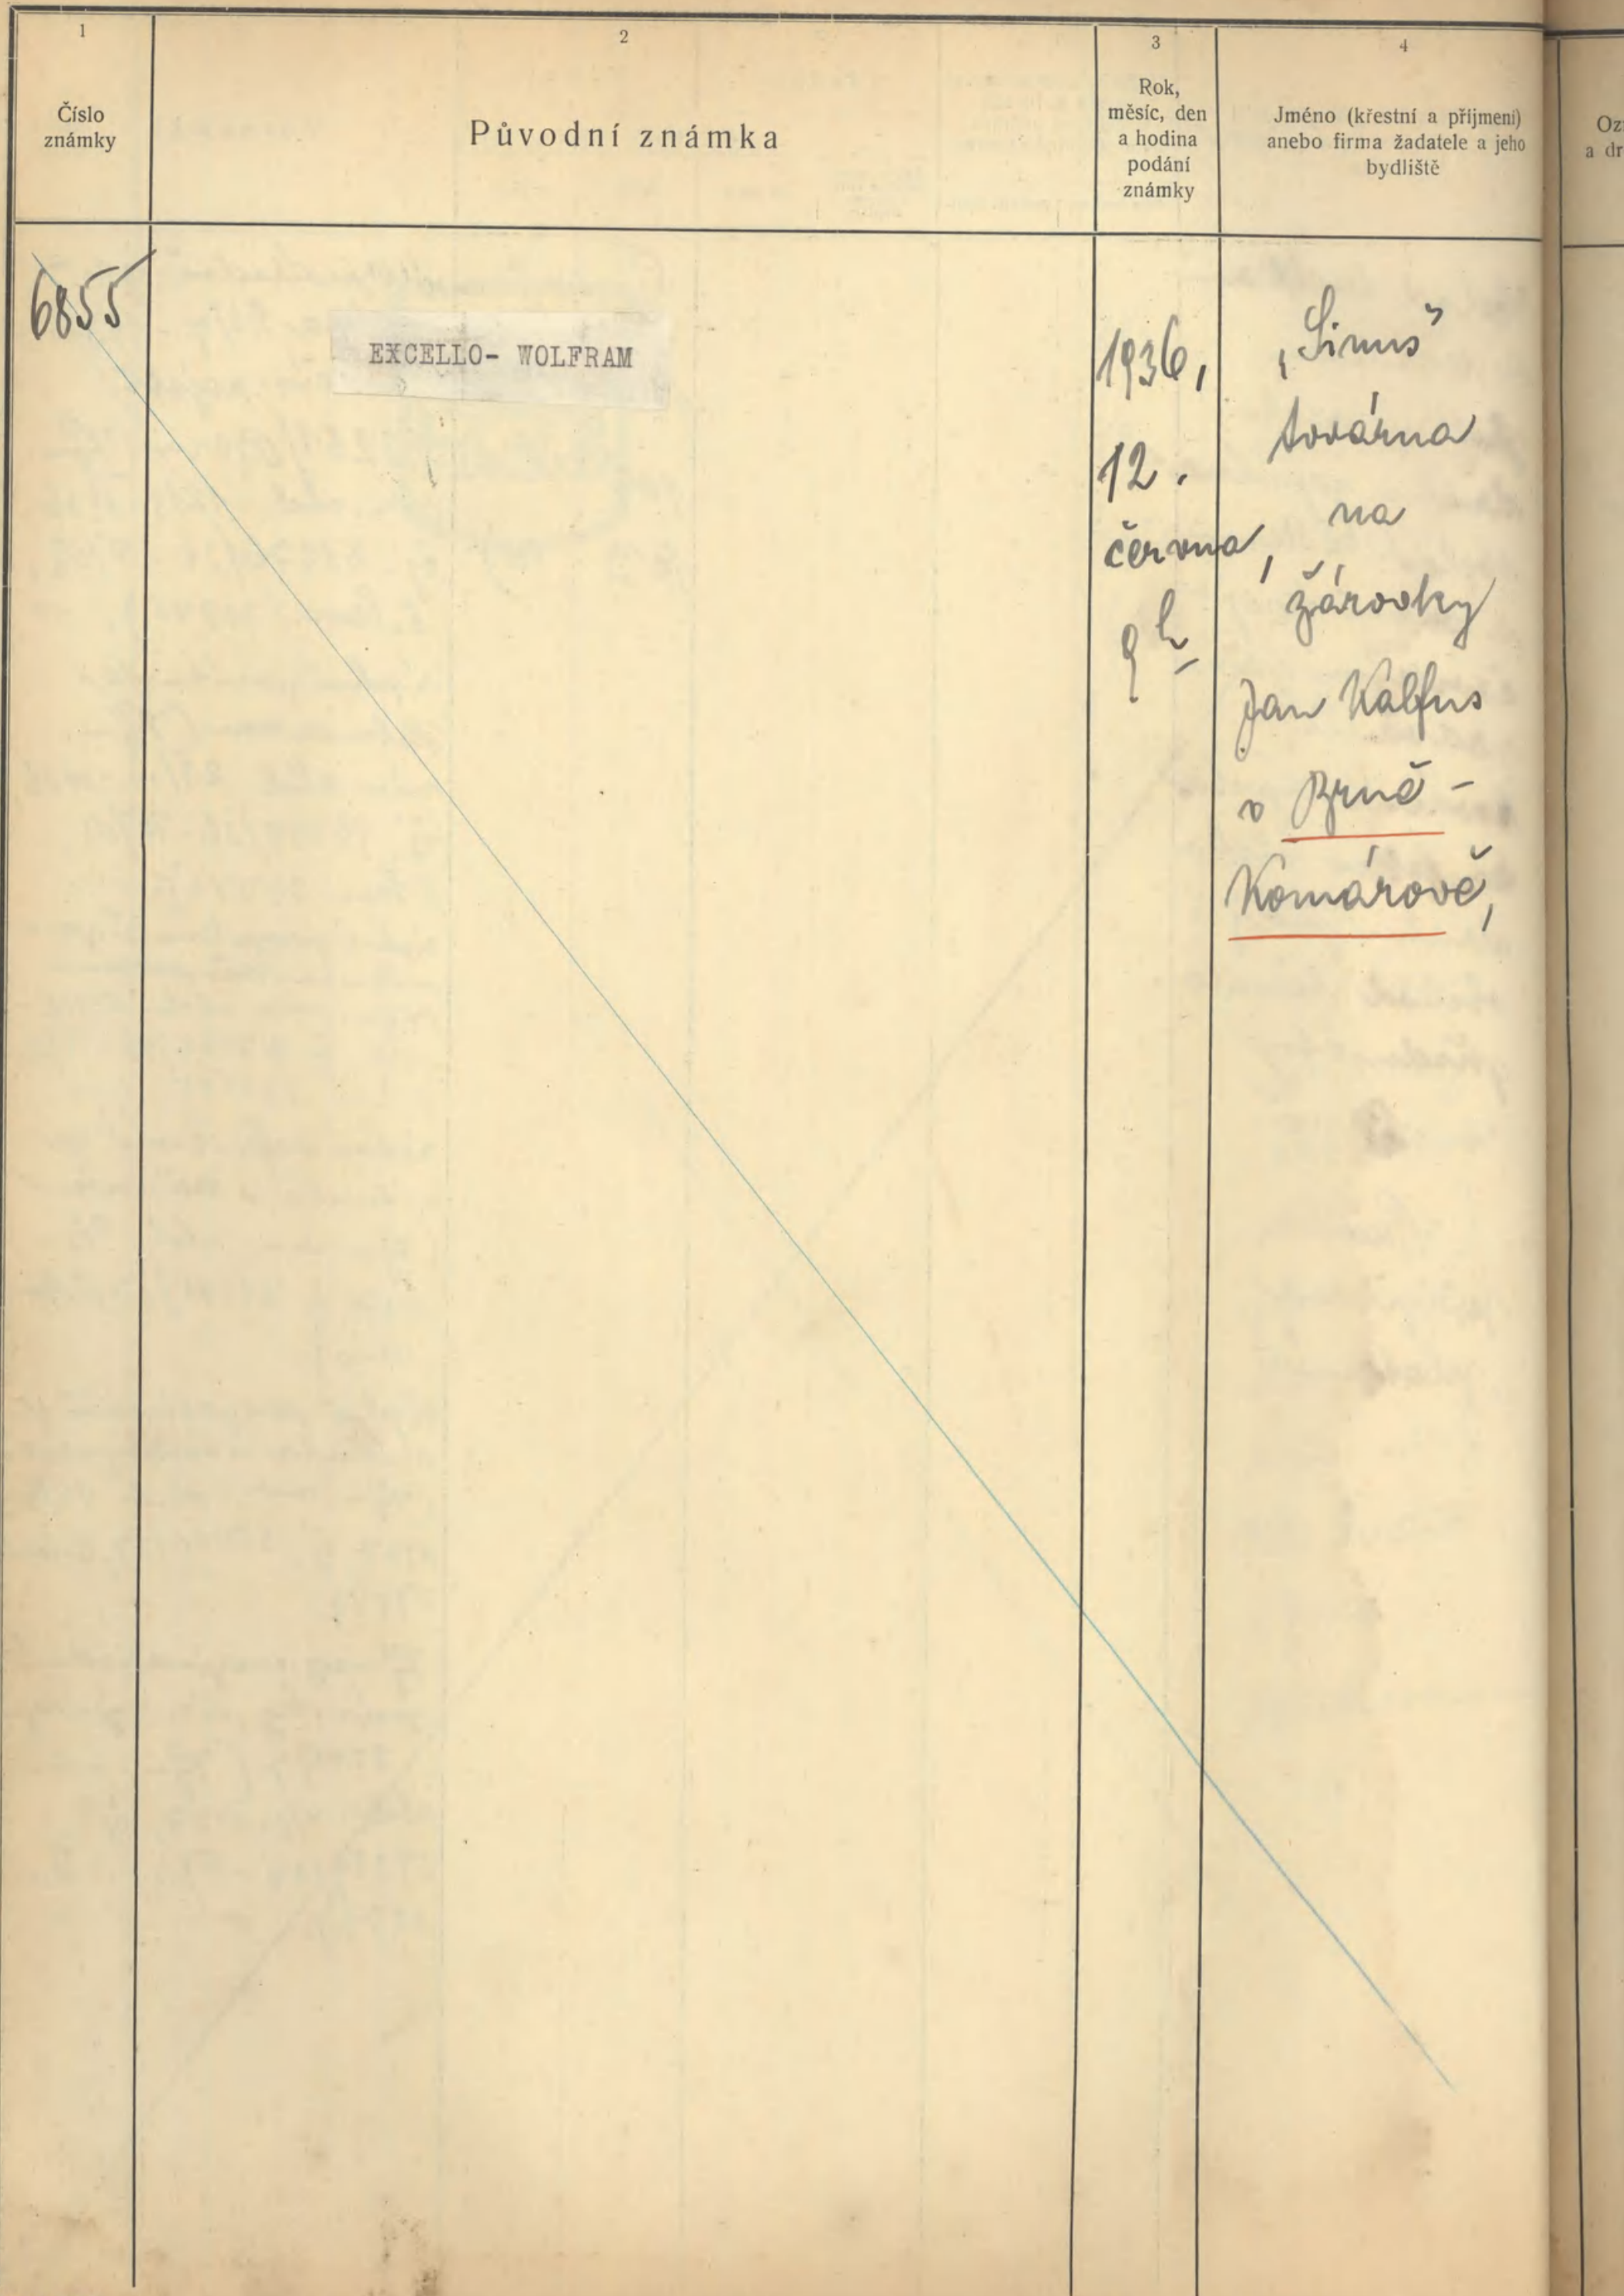 1
Číslo
známky
2
Původní známka
3
Rok,
měsíc, den
a hodina
podání
známky
4
Jméno (křestní a příjmení)
anebo firma žadatele a jeho
bydliště
6855
EXCELLO- WOLFRAM
1936,
12.
června,
9 h
„Sirius“
továrna
na
žárovky
Jan Kalfus
v Brně -
Komárově,